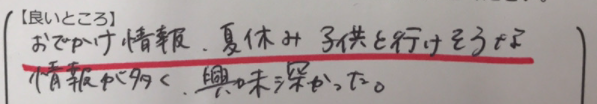 【良いところ】
おでかけ情報、夏休み 子供と行けそうな
情報が多く、興味深かった。